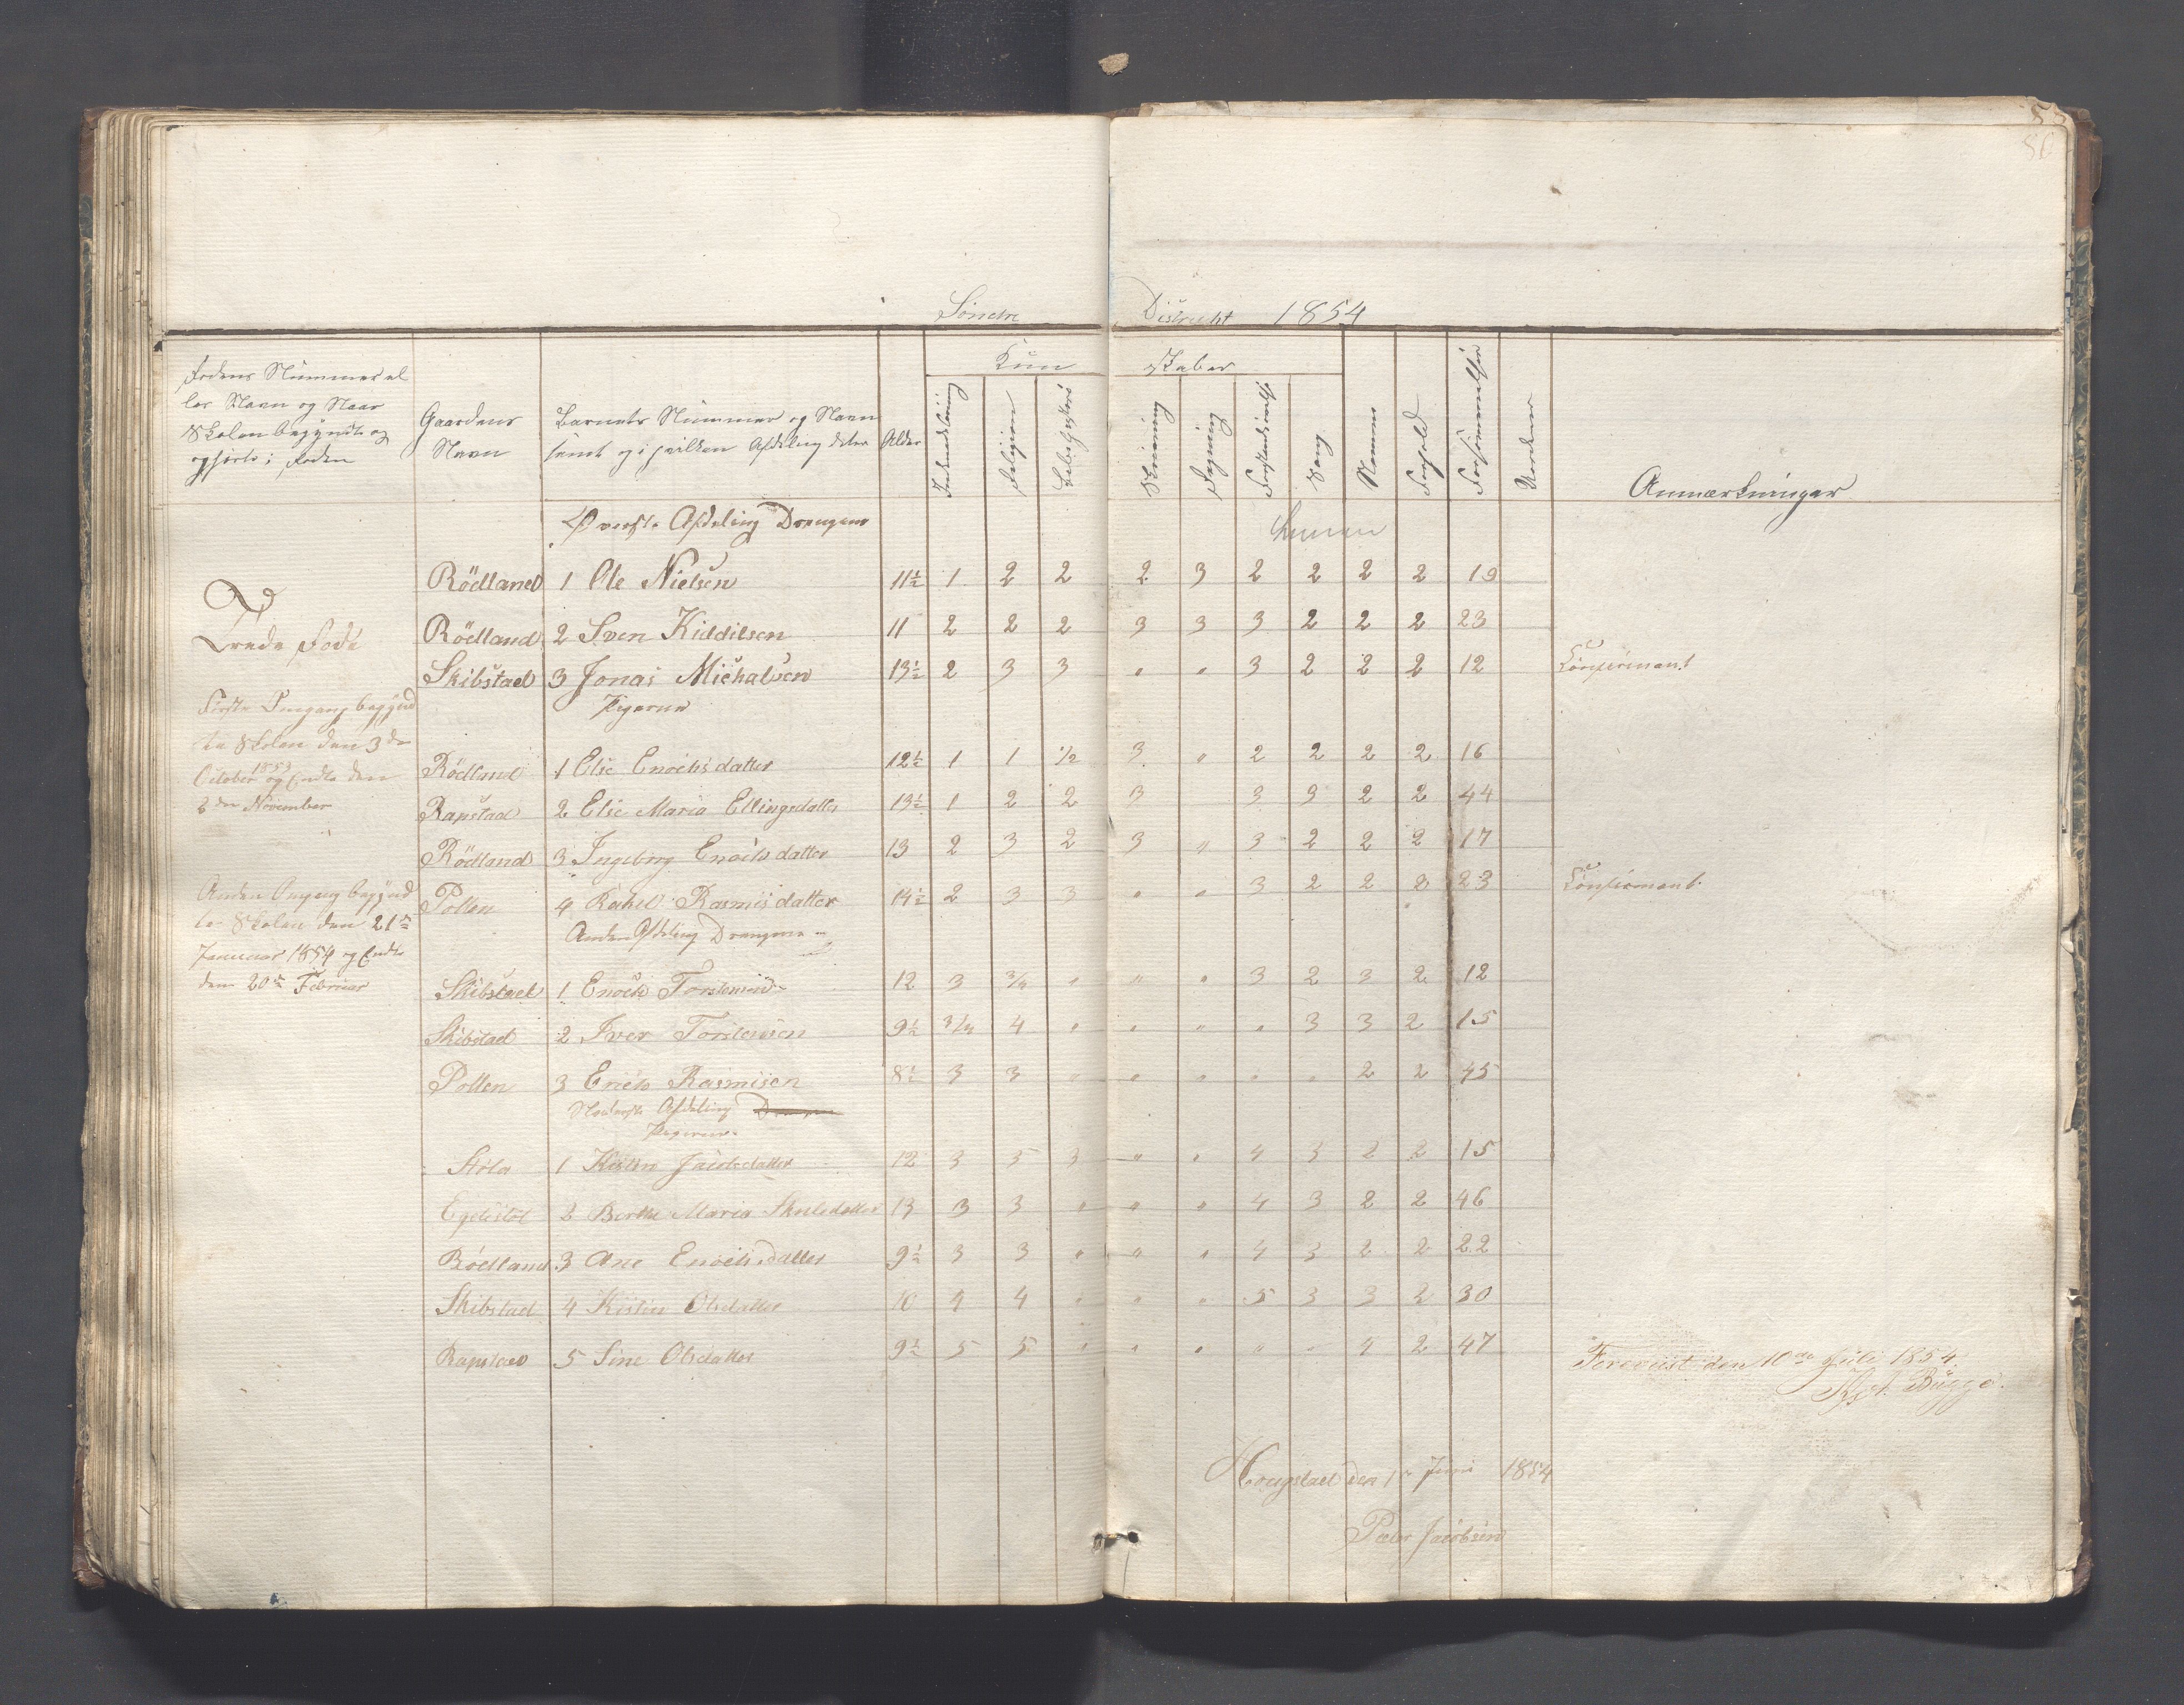 86
Söndre Districkt 1854
Rodens Nummer el
ler Navn og Naar
Skolen begyndte og
ophörte i Roden
Gaardens
Navn
Barnets Nummer og Navn
samt og i hvilken Afdeling det er
Alder
Kund skaber
Indenadslæsning
Religion
Bibelhistorie
Skrivning
Regning
Forstandsøvelse
Sang
Nemme
Forhold
Forsømmelser
Anmærkninger
Øverste Afdeling Drengene
Rödland 1 Ole Nielsen 11½ 1 2 2 2 3 2 2 2 2 19
Tredie Rode
Rödland 2 Sven Kiddilsen 11 2 2 2 3 3 3 2 2 2 23
Skibstad 3 Jonas Michalsen 13½ 2 3 3 " " 3 2 2 2 12 Confirmant
Pigerne
Første Omgang begynd
te Skolen den 3de
October 1853 og Endte den
2den November
Rödland 1 Elic Enochsdatter 12½ 1 1 1/2 3 " 2 2 2 2 16
Rapstad 2 Elic Maria Ellingsdatter 13½ 1 2 2 3 3 3 2 2 44
Rödland 3 Ingeborg Enochsdatter 13 2 3 2 3 " 3 2 2 2 17
Anden Omgang begynd
te Skolen den 21de
Januar 1854 og Endte
den 20de Februar
Pollen 4 Rahel Rasmisdatter 14½ 2 3 3 " " 3 2 2 2 23 Confirmant
Anden Afdeling Drengene
Skibstad 1 Enoch Torstensen 12 3 3/4 " " " 3 2 3 2 12
Skibstad 2 Iver Torstensen 9½ 3/4 4 " " " " 3 3 2 15
Pollen 3 Enoch Rasmisen 8½ 3 3 " " " " " 2 2 45
Nederste Afdeling
Pigerne
Stöla 1 Kistin Jacobsdatter 12 3 3 3 " " 4 3 2 2 15
Egelistöl 2 Berthe Maria Skulesdatter 13 3 3 " " " 4 3 2 2 46
Rödland 3 Ane Enochsdatter 9½ 3 3 " " " 4 3 2 2 22
Skibstad 4 Kistin Olsdatter 10 4 4 " " " 5 3 3 2 30
Rapstad 5 Sine Olsdatter 9½ 5 5 " " " " " 4 2 47
Foreviist den 10de Juli 1854
Bugge.
Hougstad den 1 Juni 1854
Peder Jacobsen